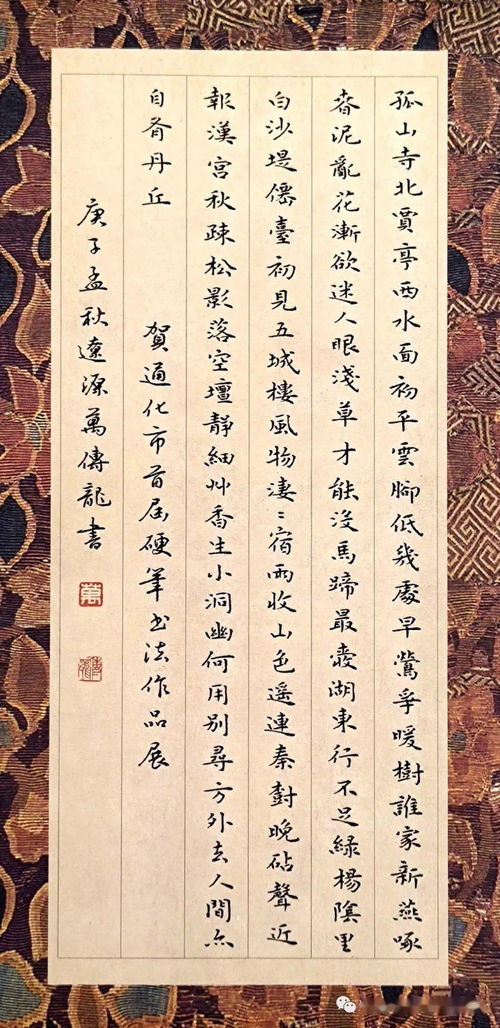 孤山寺北賈亭西水面初平雲腳低幾處早鶯爭暖樹誰家新燕啄
春泥亂花漸欲迷人眼淺草才能沒馬蹄最愛湖東行不足綠楊隂里
白沙堤僊臺初見五城樓風物淒〻宿雨收山色遥連秦樹晚砧聲近
報漢宮秋疎松影落空壇靜細艸香生小洞幽何用別尋方外去人間亦
自有丹丘 賀通化市首屆硬筆书法作品展
庚子孟秋遼源萬傳龍書
萬